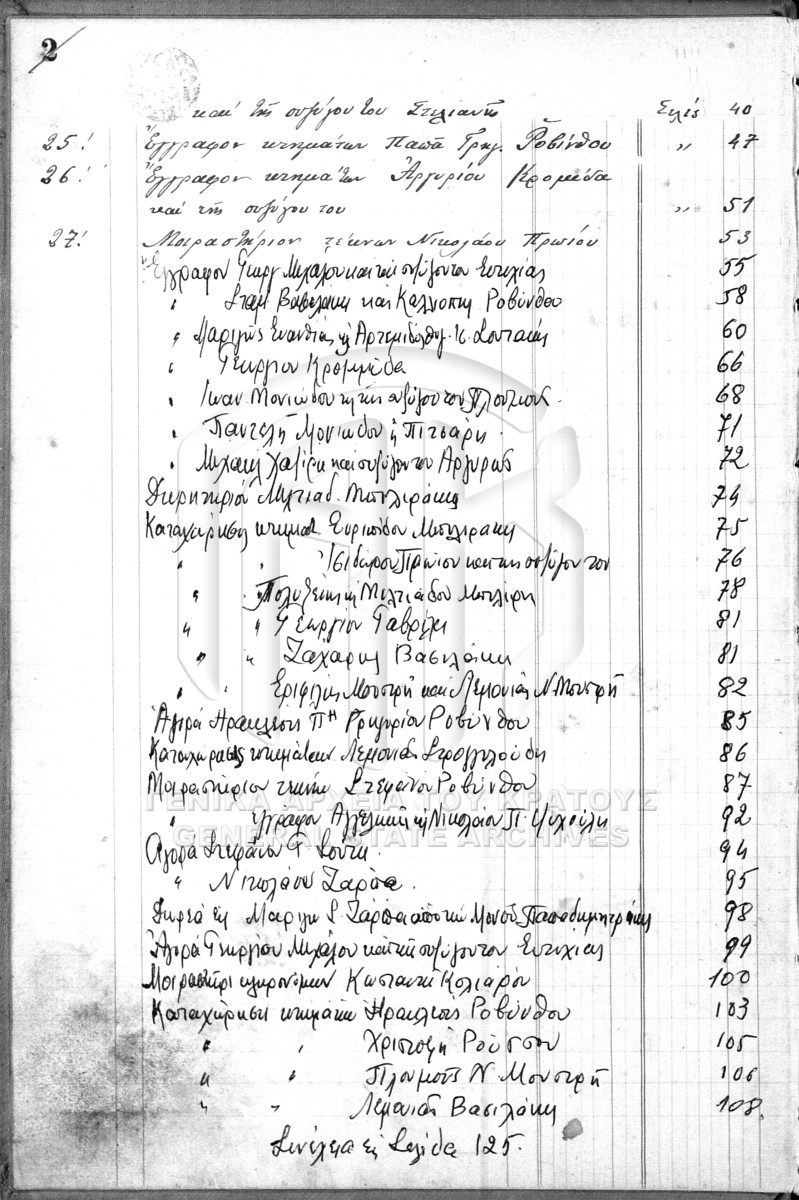 2
καὶ τῆς συζύγου του Στελιανῆς Σελὶς 40
25! Ἔγγραφον κτημάτων Παπᾶ Γρηγ. Ροβίνθου " 47
26! Ἔγγραφον κτημάτων Ἀργυρίου Κρομύδα
καὶ τῆς συζύγου του " 51
27! Μοιραστήριον τέκνων Νικολάου Πρωίου 53
Ἔγγραφον Γεωργ Μιχάλου καὶ τῆς συζύγου του Ευτυχίας 55
" Σταμ Βασιλάκη καὶ Καλιοπης Ροβύνθου 58
" Μαριγῶς Ευανθίας κ Αρτεμι 60
" Γεωργίου Κρομμύδα 66
" Ιωαν Μονιώδου κ τῆς συζύγου του Πλουμους 68
" Παντελῆ Μονιωδου ἢ Πιτσάρη 71
" Μιχαηλ Χαζίρη καὶ συζύγου του Αργυρῶς 72
Μιλτιαδ. Μπιλιράκη 74
Καταχώρησις κτηματ Ευριπίδου Μπιλιρακη 75
" " Ισιδώρου Πρωίου καὶ της συζύγου του 76
" " Πολυξένης κ Μιλτιάδου Μπιλιρη 78
" " Γεωργίου Γαβρίλη 81
" " Ζαχάρη Βασιλάκη 81
" " Εριφίλης Μουστρῆ καὶ Λεμονιᾶς Ν. Μουστρῆ 82
Ἀγορά Ηρακλέους Πη Γρηγορίου Ροβύνθου 85
Καταχώρησις κτημάτων Λεμονιᾶς Στρογγυλούδη 86
Μοιραστήριον τεκνων Στεφάνου Ροβύνθου 87
" Εγγραφον Αγγελικῆς κ Νικολάου Π. 92
Αγορά Στεφάνου Γ. Σουτη. 94
" Νικολάου Ζαρπα. 95
Δωρεά εις Μαριγω Σ. Ζαρπα απο την Παπαδημητράκη 98
Ἀγορά Γεωργίου Μιχάλου καὶ τῆς συζύγου του Ευτυχίας 99
Μοιραστήρι κληρονόμων Κωσταντη Κολιάρου 100
Καταχώρηση κτημάτων Ηρακλέους Ροβύνθου 103
" " Χριστοφῆ Ρούσσου 105
" " Πλουμοῦς Ν. Μουστρῆ 106
" " Λεμονιᾶς Βασιλάκη 108.
Συνέχεια εις Σελίδα 125.
ΓΕΝΙΚΑ ΑΡΧΕΙΑ ΤΟΥ ΚΡΑΤΟΥΣ
GENERAL STATE ARCHIVES